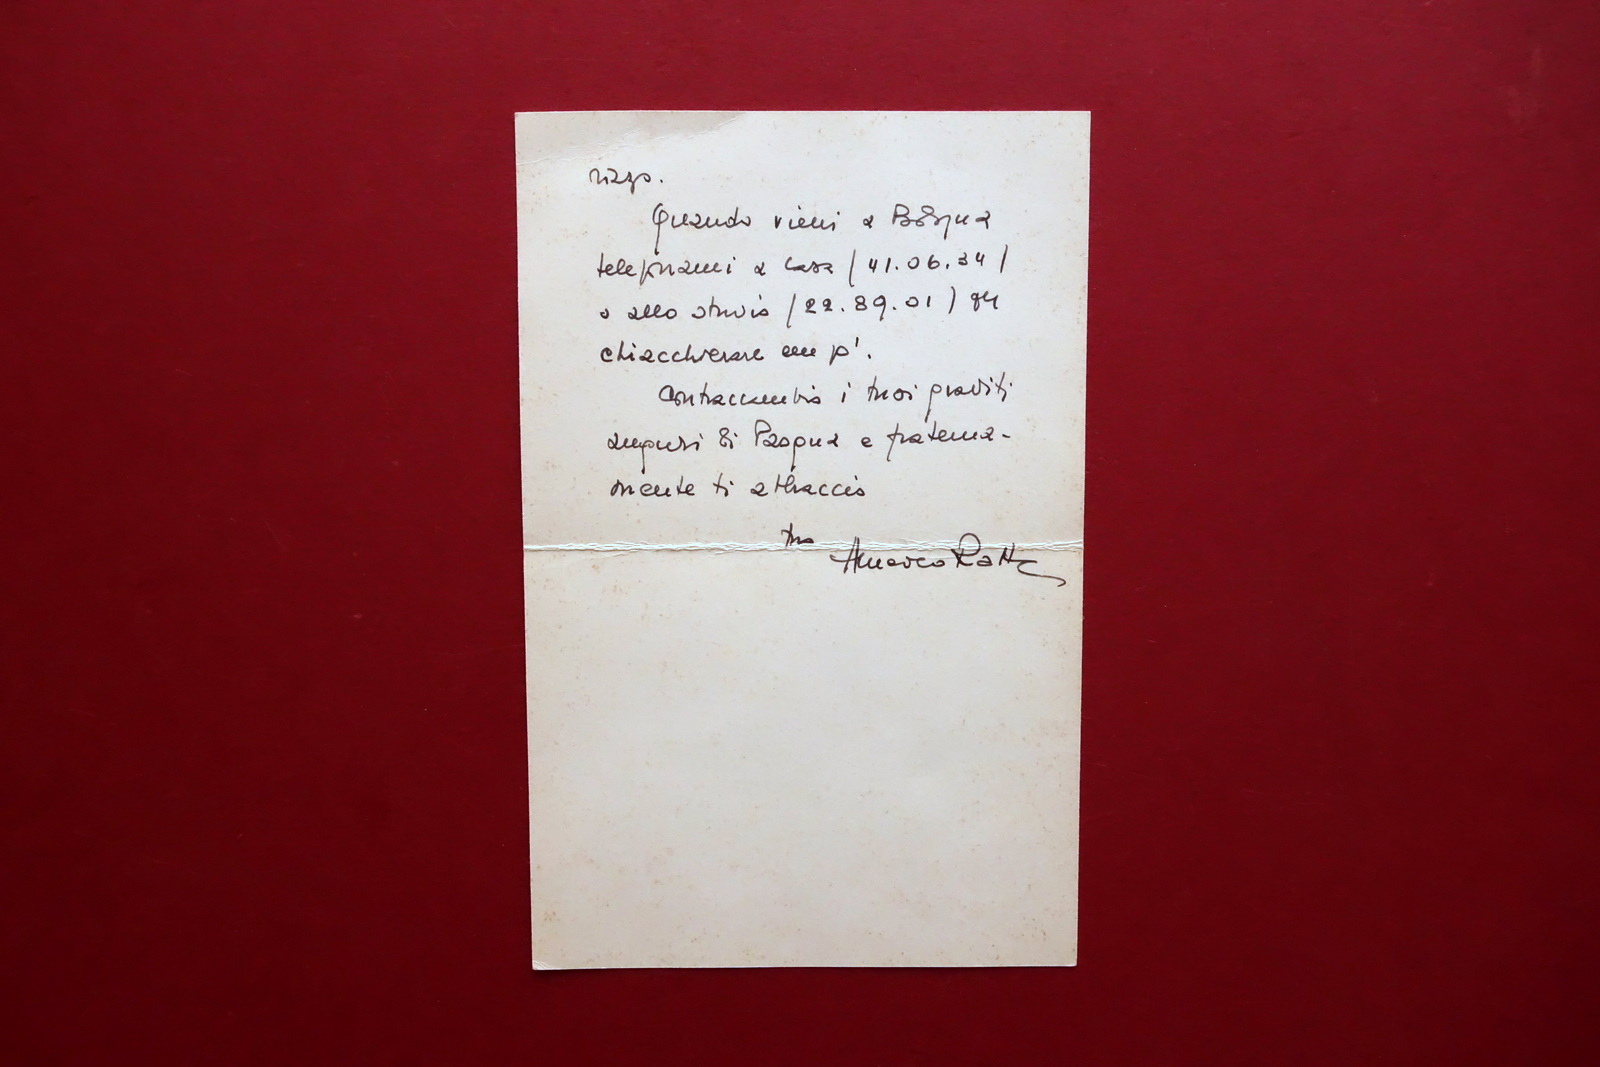 rizzo.
Quando vieni a Bologna
telefonami a casa (41.06.34)
o allo studio (22.89.01) per
chiacchierare un po'.
Contraccambio i tuoi graditi
auguri di Pasqua e fraterna-
mente ti abbraccio
tuo